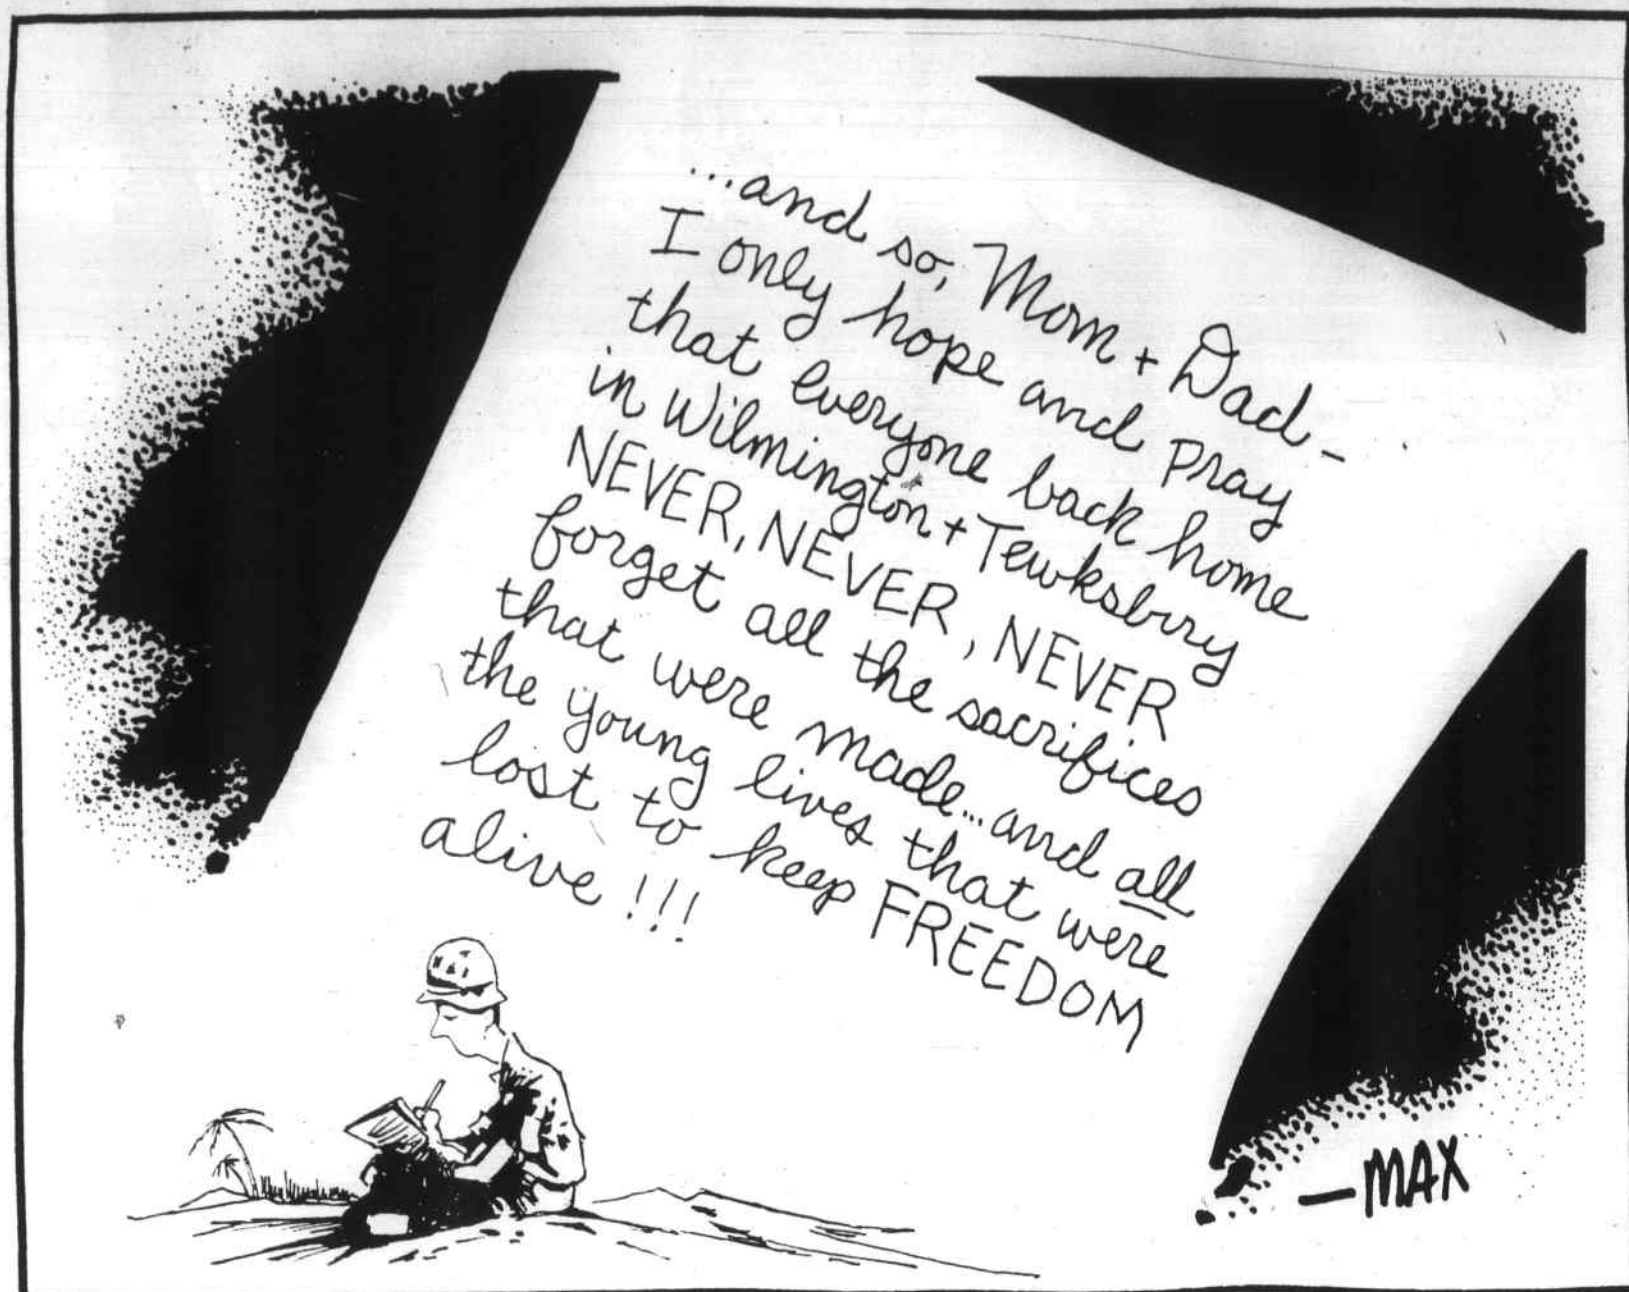 ...and so, Mom + Dad -
I only hope and pray
that everyone back home
in Wilmington + Tewksbury
NEVER, NEVER, NEVER
forget all the sacrifices
that were made... and all
the young lives that were
lost to keep FREEDOM
alive !!!
—MAX